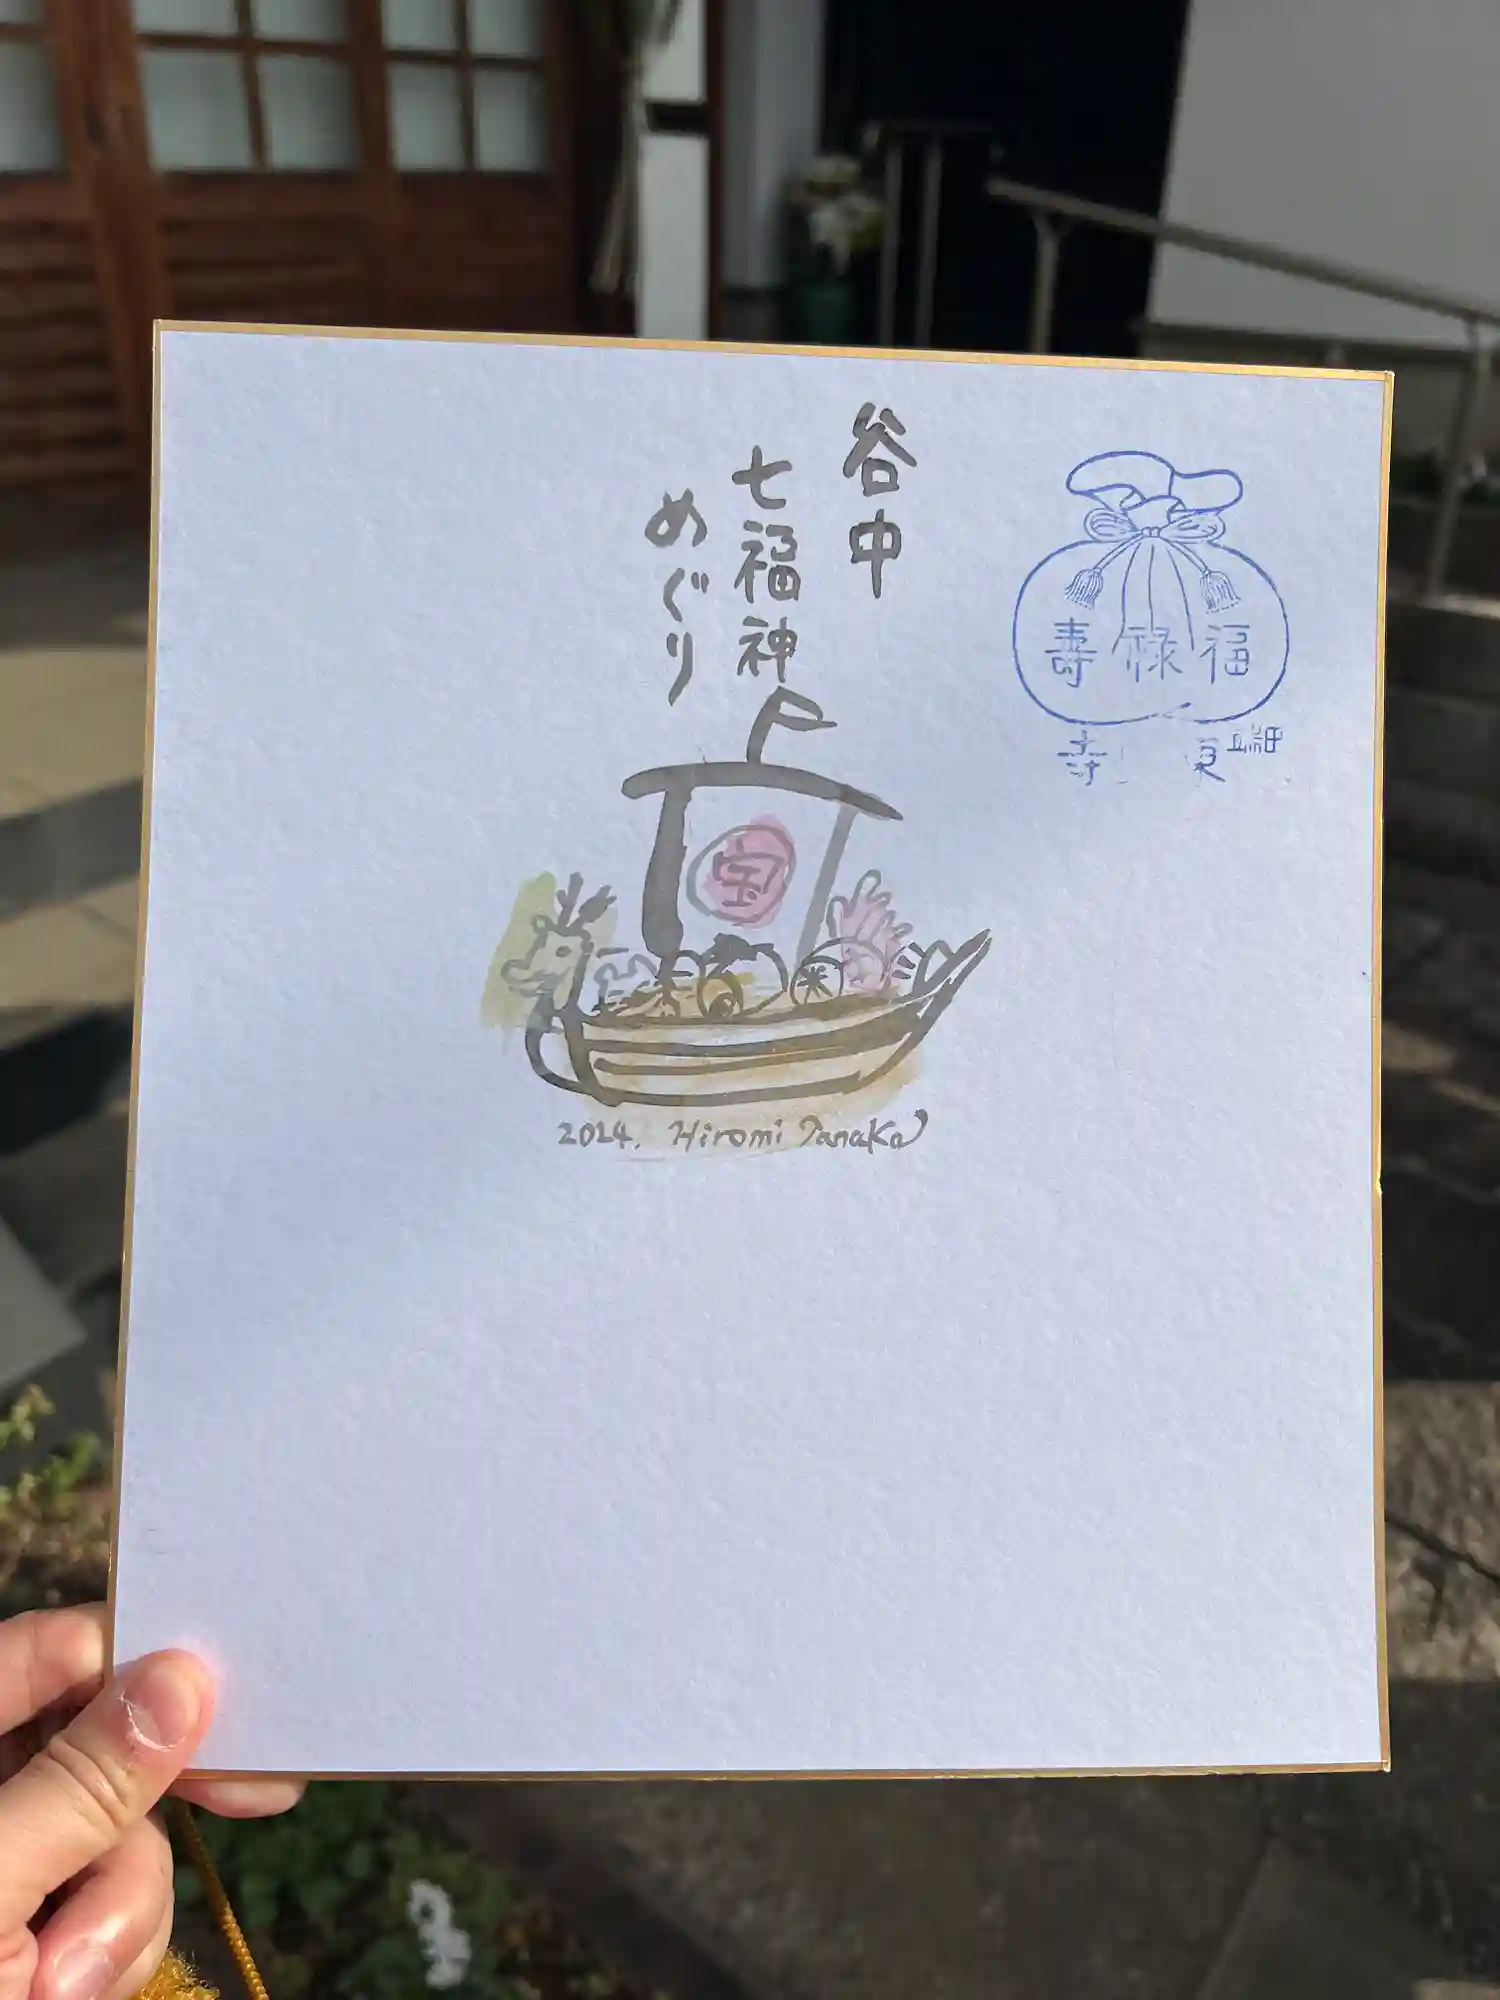 谷中
七福神
めぐり
宝
2024. Hiromi Tanaka
福禄寿
田端
東 寺